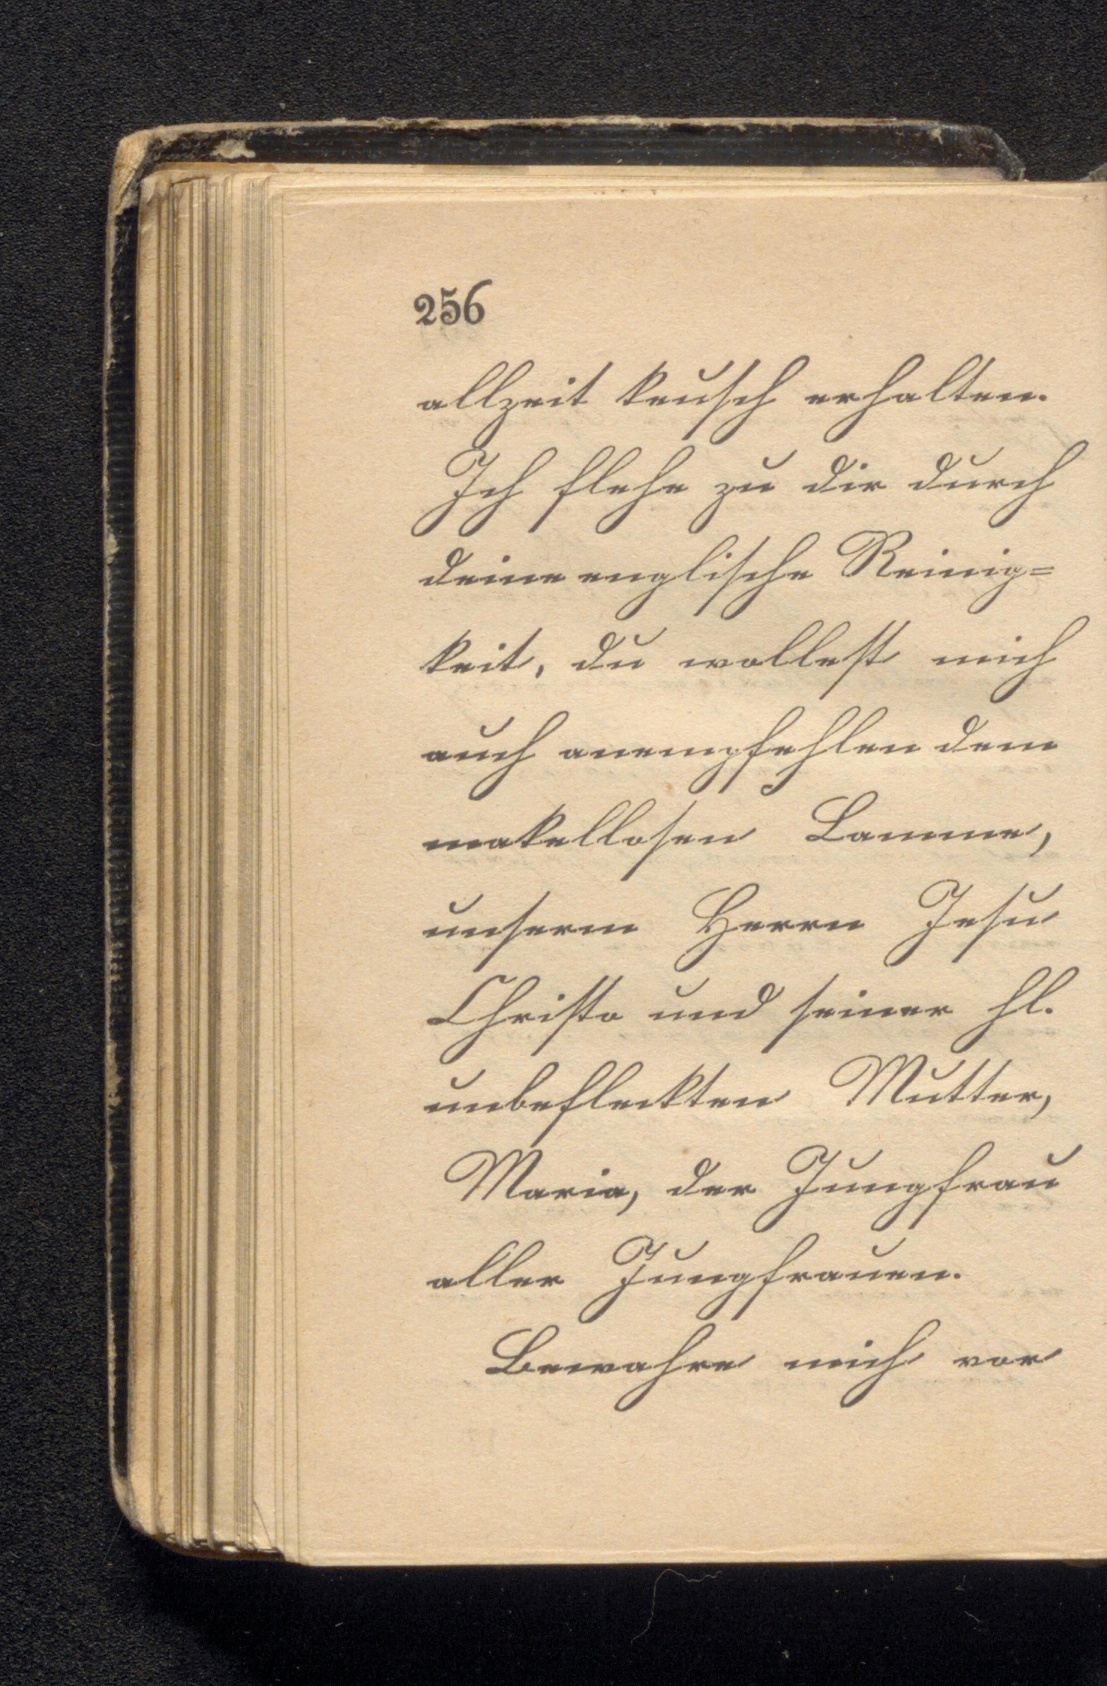 256
allzeit keusch erhalten.
Ich flehe zu dir durch
deine englische Reinig=
keit, du wollest mich
auch anempfehlen dem
makellosen Lamme,
unserm Herrn Jesu
Christo und seiner hl.
unbefleckten Mutter,
Maria, der Jungfrau
aller Jungfrauen.
Bewahre mich vor